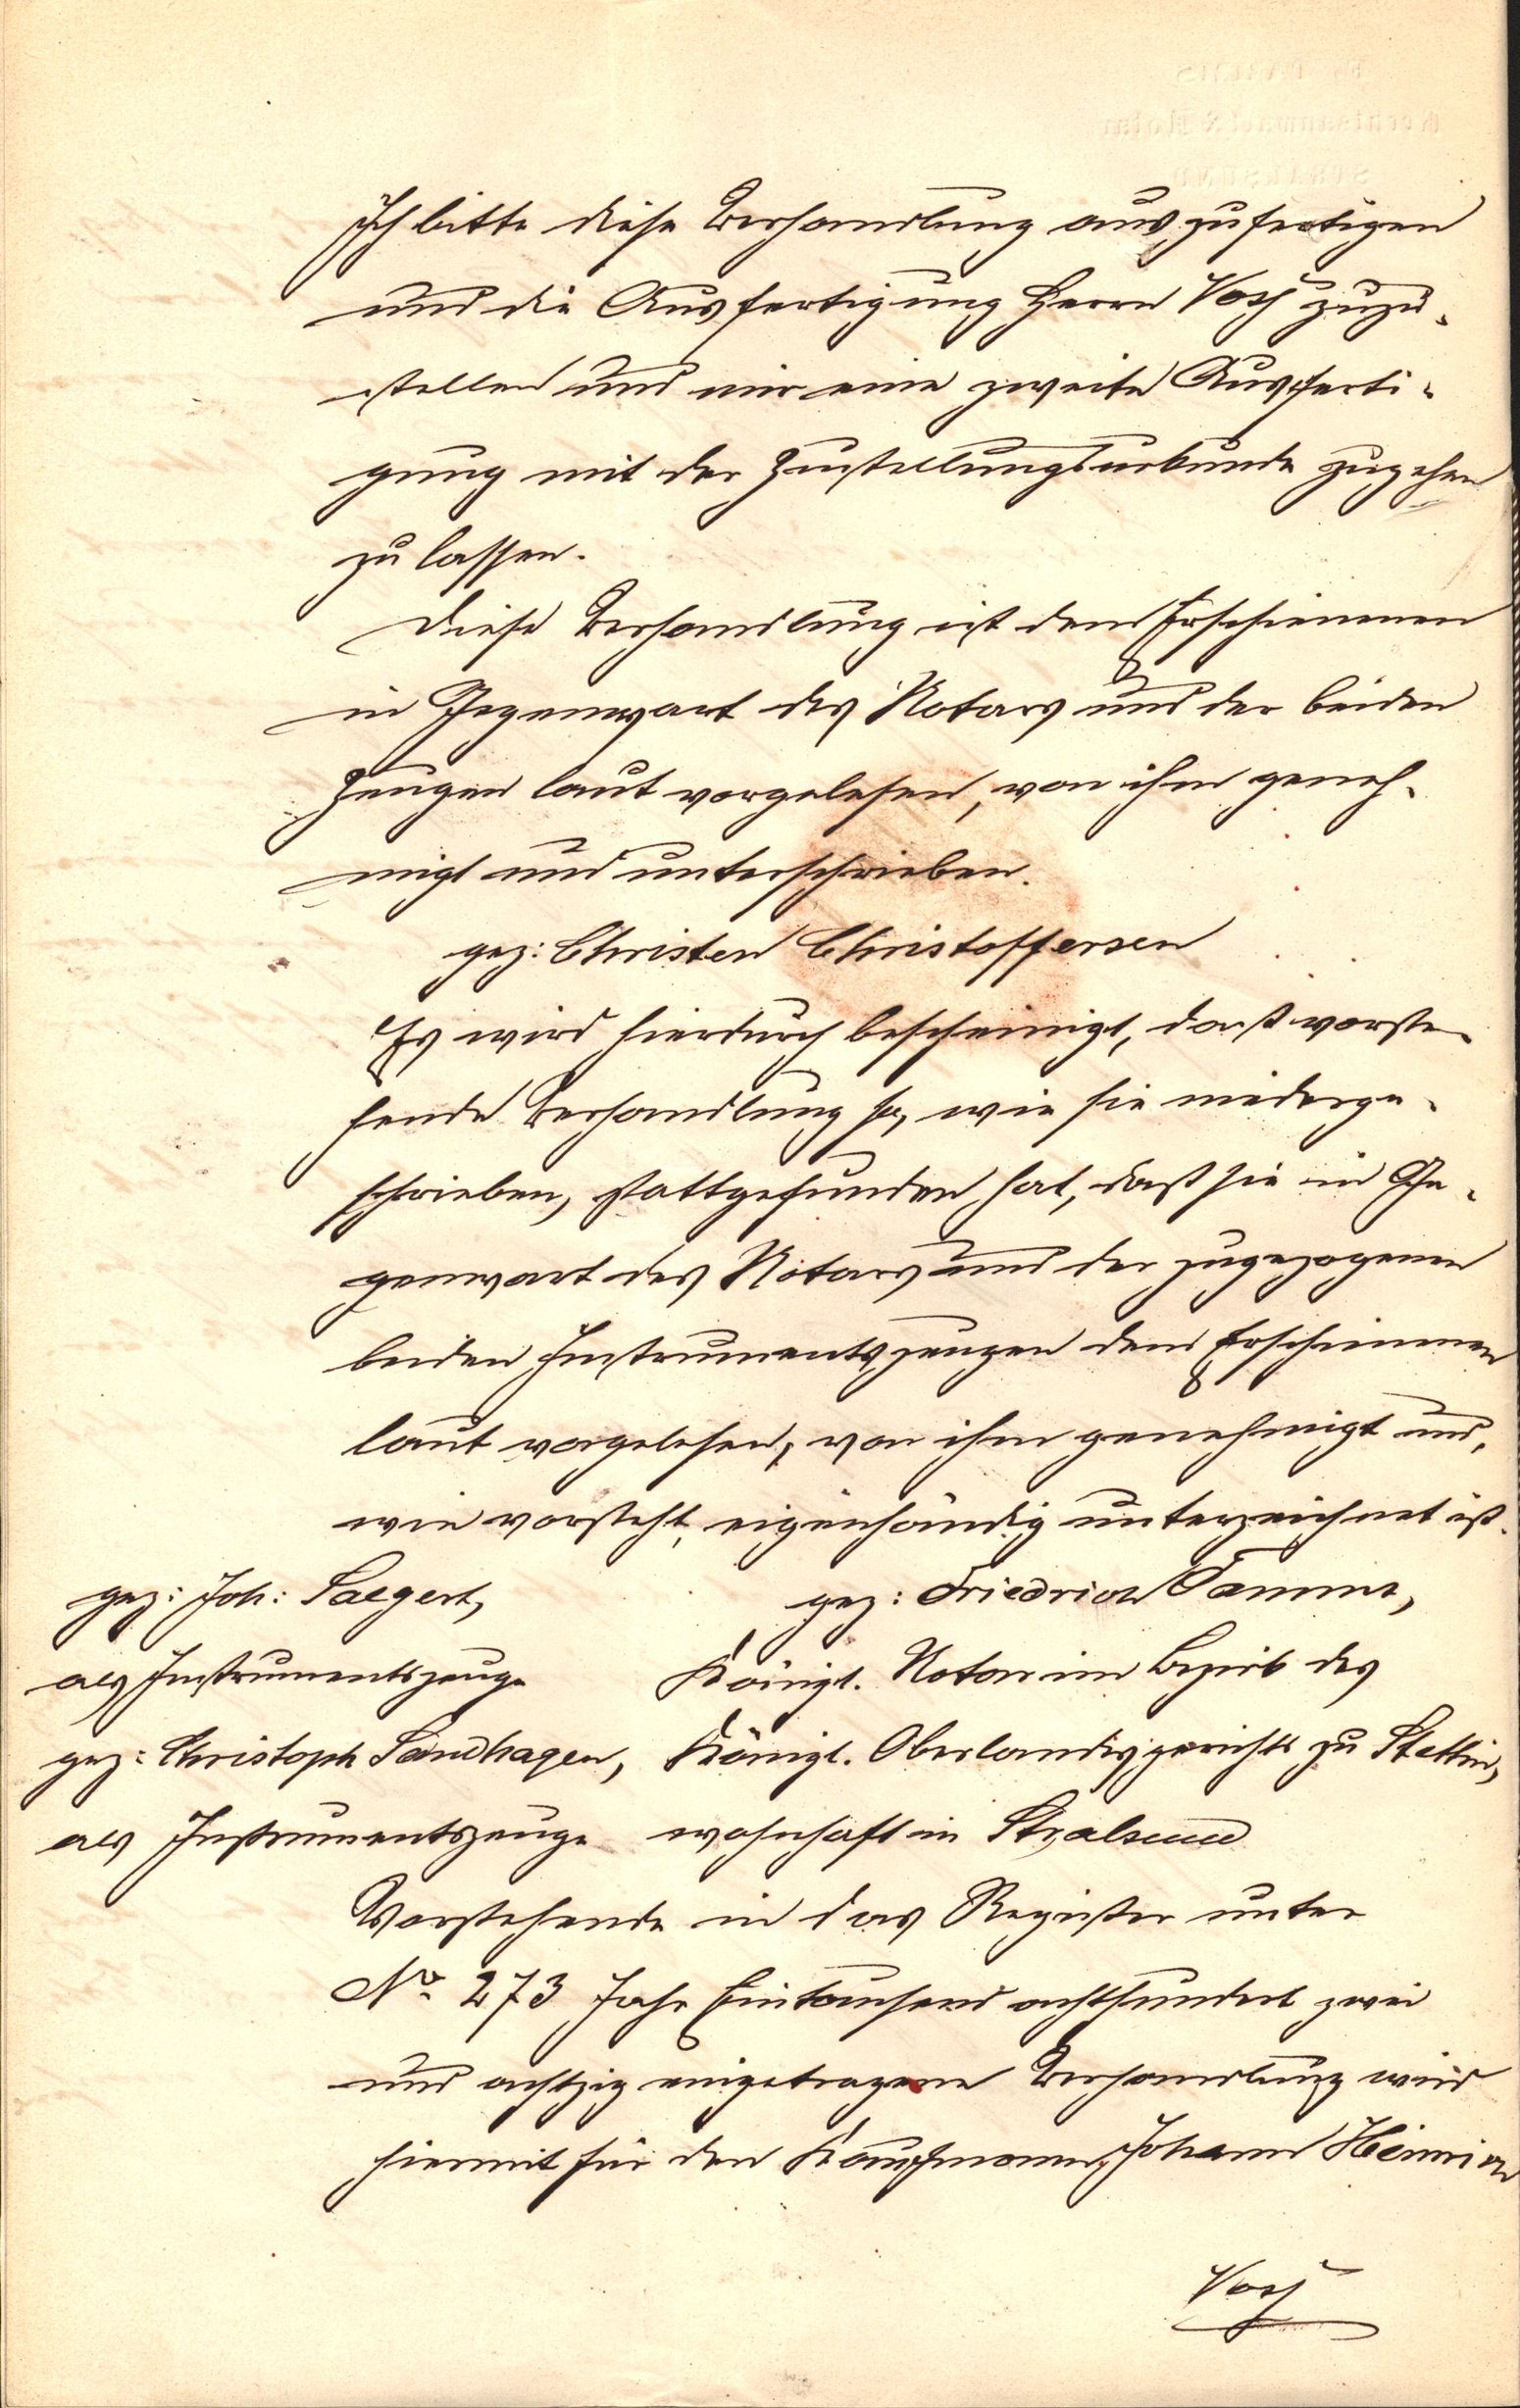 Ich bitte diese Verhandlung auszufertigen
und die Ausfertigung Herrn Voss zuzu-
stellen und mir eine zweite Ausferti-
gung mit der Zustellungsurkunde zugehen
zu lassen.
Diese Verhandlung ist dem Erschienenen
in Gegenwart des Notars und der beiden
Zeugen laut vorgelesen, von ihm geneh-
migt und unterschrieben.
gez: Christen Christoffersen
Es wird hierdurch bescheinigt, daß vorste-
hende Verhandlung so, wie sie niederge-
schrieben, stattgefunden hat, daß sie in Ge-
genwart des Notars und der zugezogenen
beiden Instrumentszeugen dem Erschienenen
laut vorgelesen, von ihm genehmigt und,
wie vorsteht, eigenhändig unterzeichnet ist.
gez: Joh: Saegert, gez: Friedrich Tamms,
als Instrumentszeuge Königl. Notar im Bezirk des
gez: Christoph Sandhagen, Königl. Oberlandesgerichts zu Stettin,
als Instrumentszeuge wohnhaft in Stralsund
Vorstehende in das Register unter
No. 273 Jahr Eintausend achthundert zwei
und achtzig eingetragene Verhandlung wird
hiermit für den Kaufmann Johann Heinrich
Voss